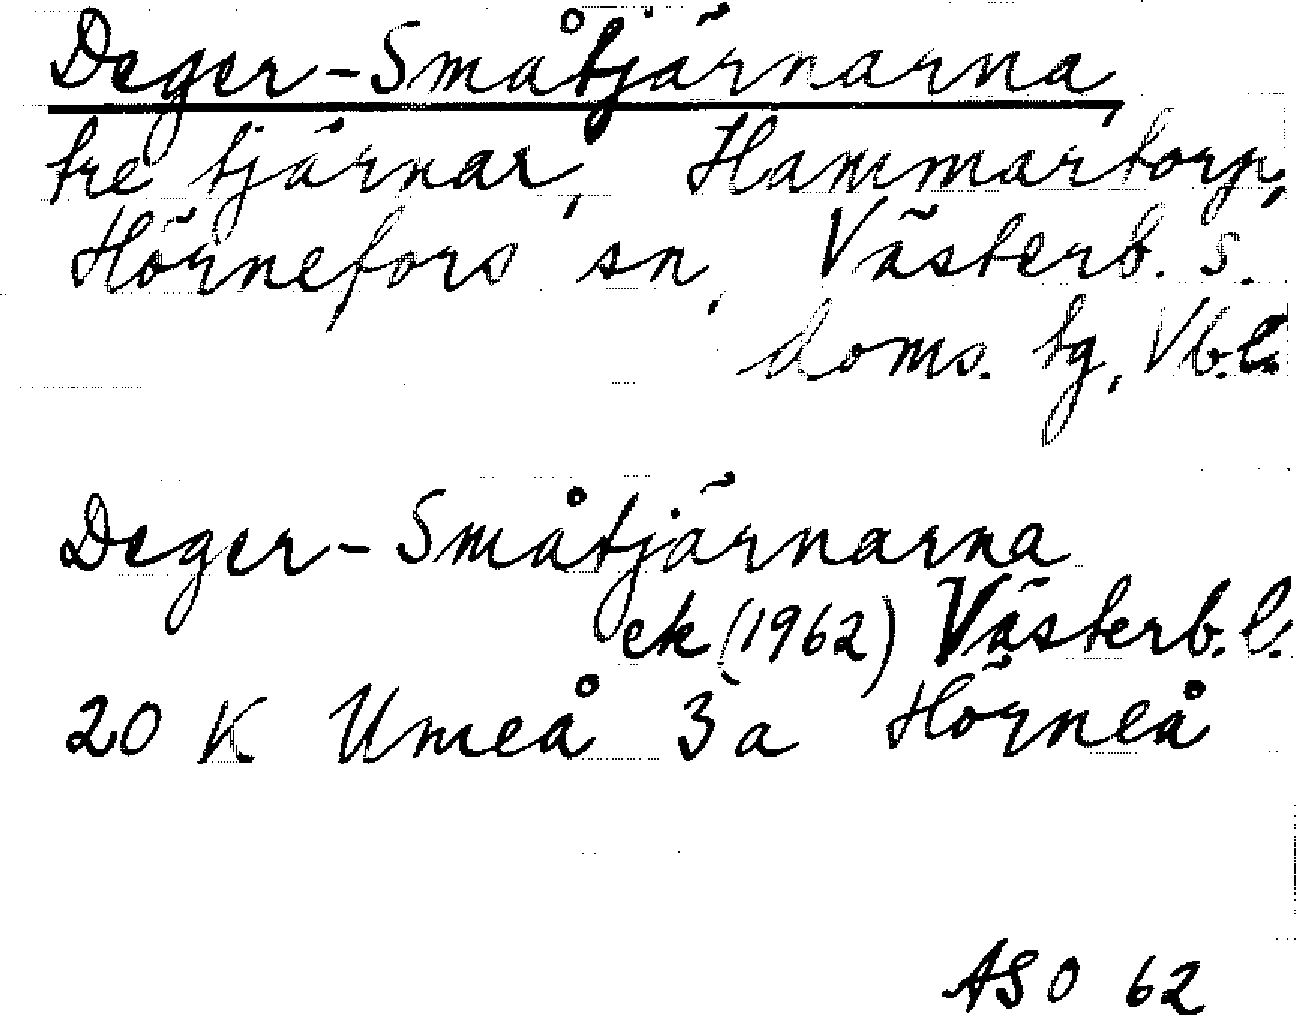 Deger-Småtjärnarna,
tre tjärnar, Hammartorp,
Hörnefors sn, Västerb. s.
doms. tg, Vb.l.
Deger-Småtjärnarna
ek (1962) Västerb. l.
20 K Umeå 3a Hörneå
ASO 62